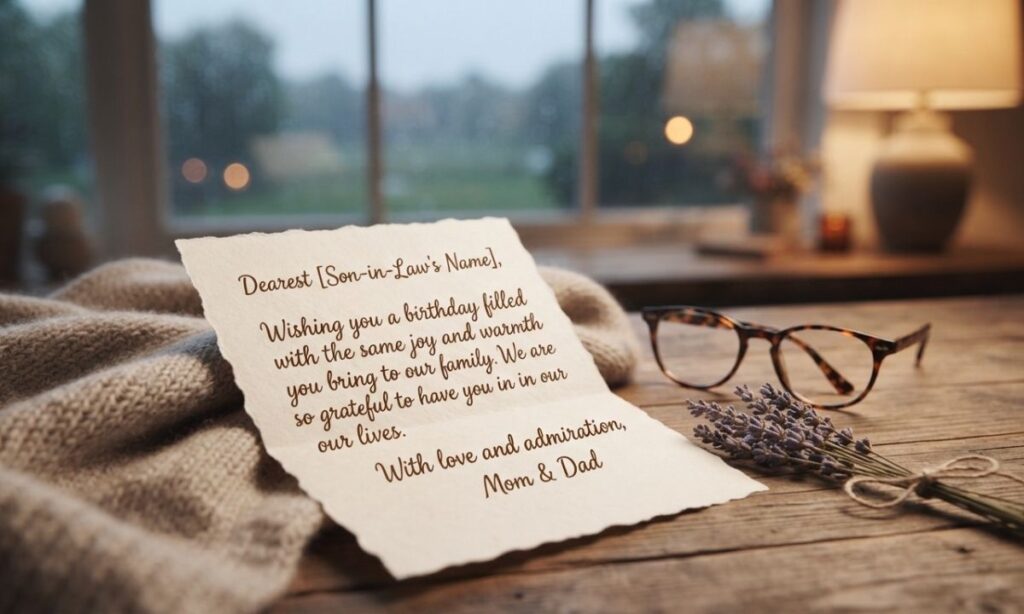 Dearest [Son-in-Law's Name],
Wishing you a birthday filled
with the same joy and warmth
you bring to our family. We are
so grateful to have you in in our
our lives.
With love and admiration,
Mom & Dad